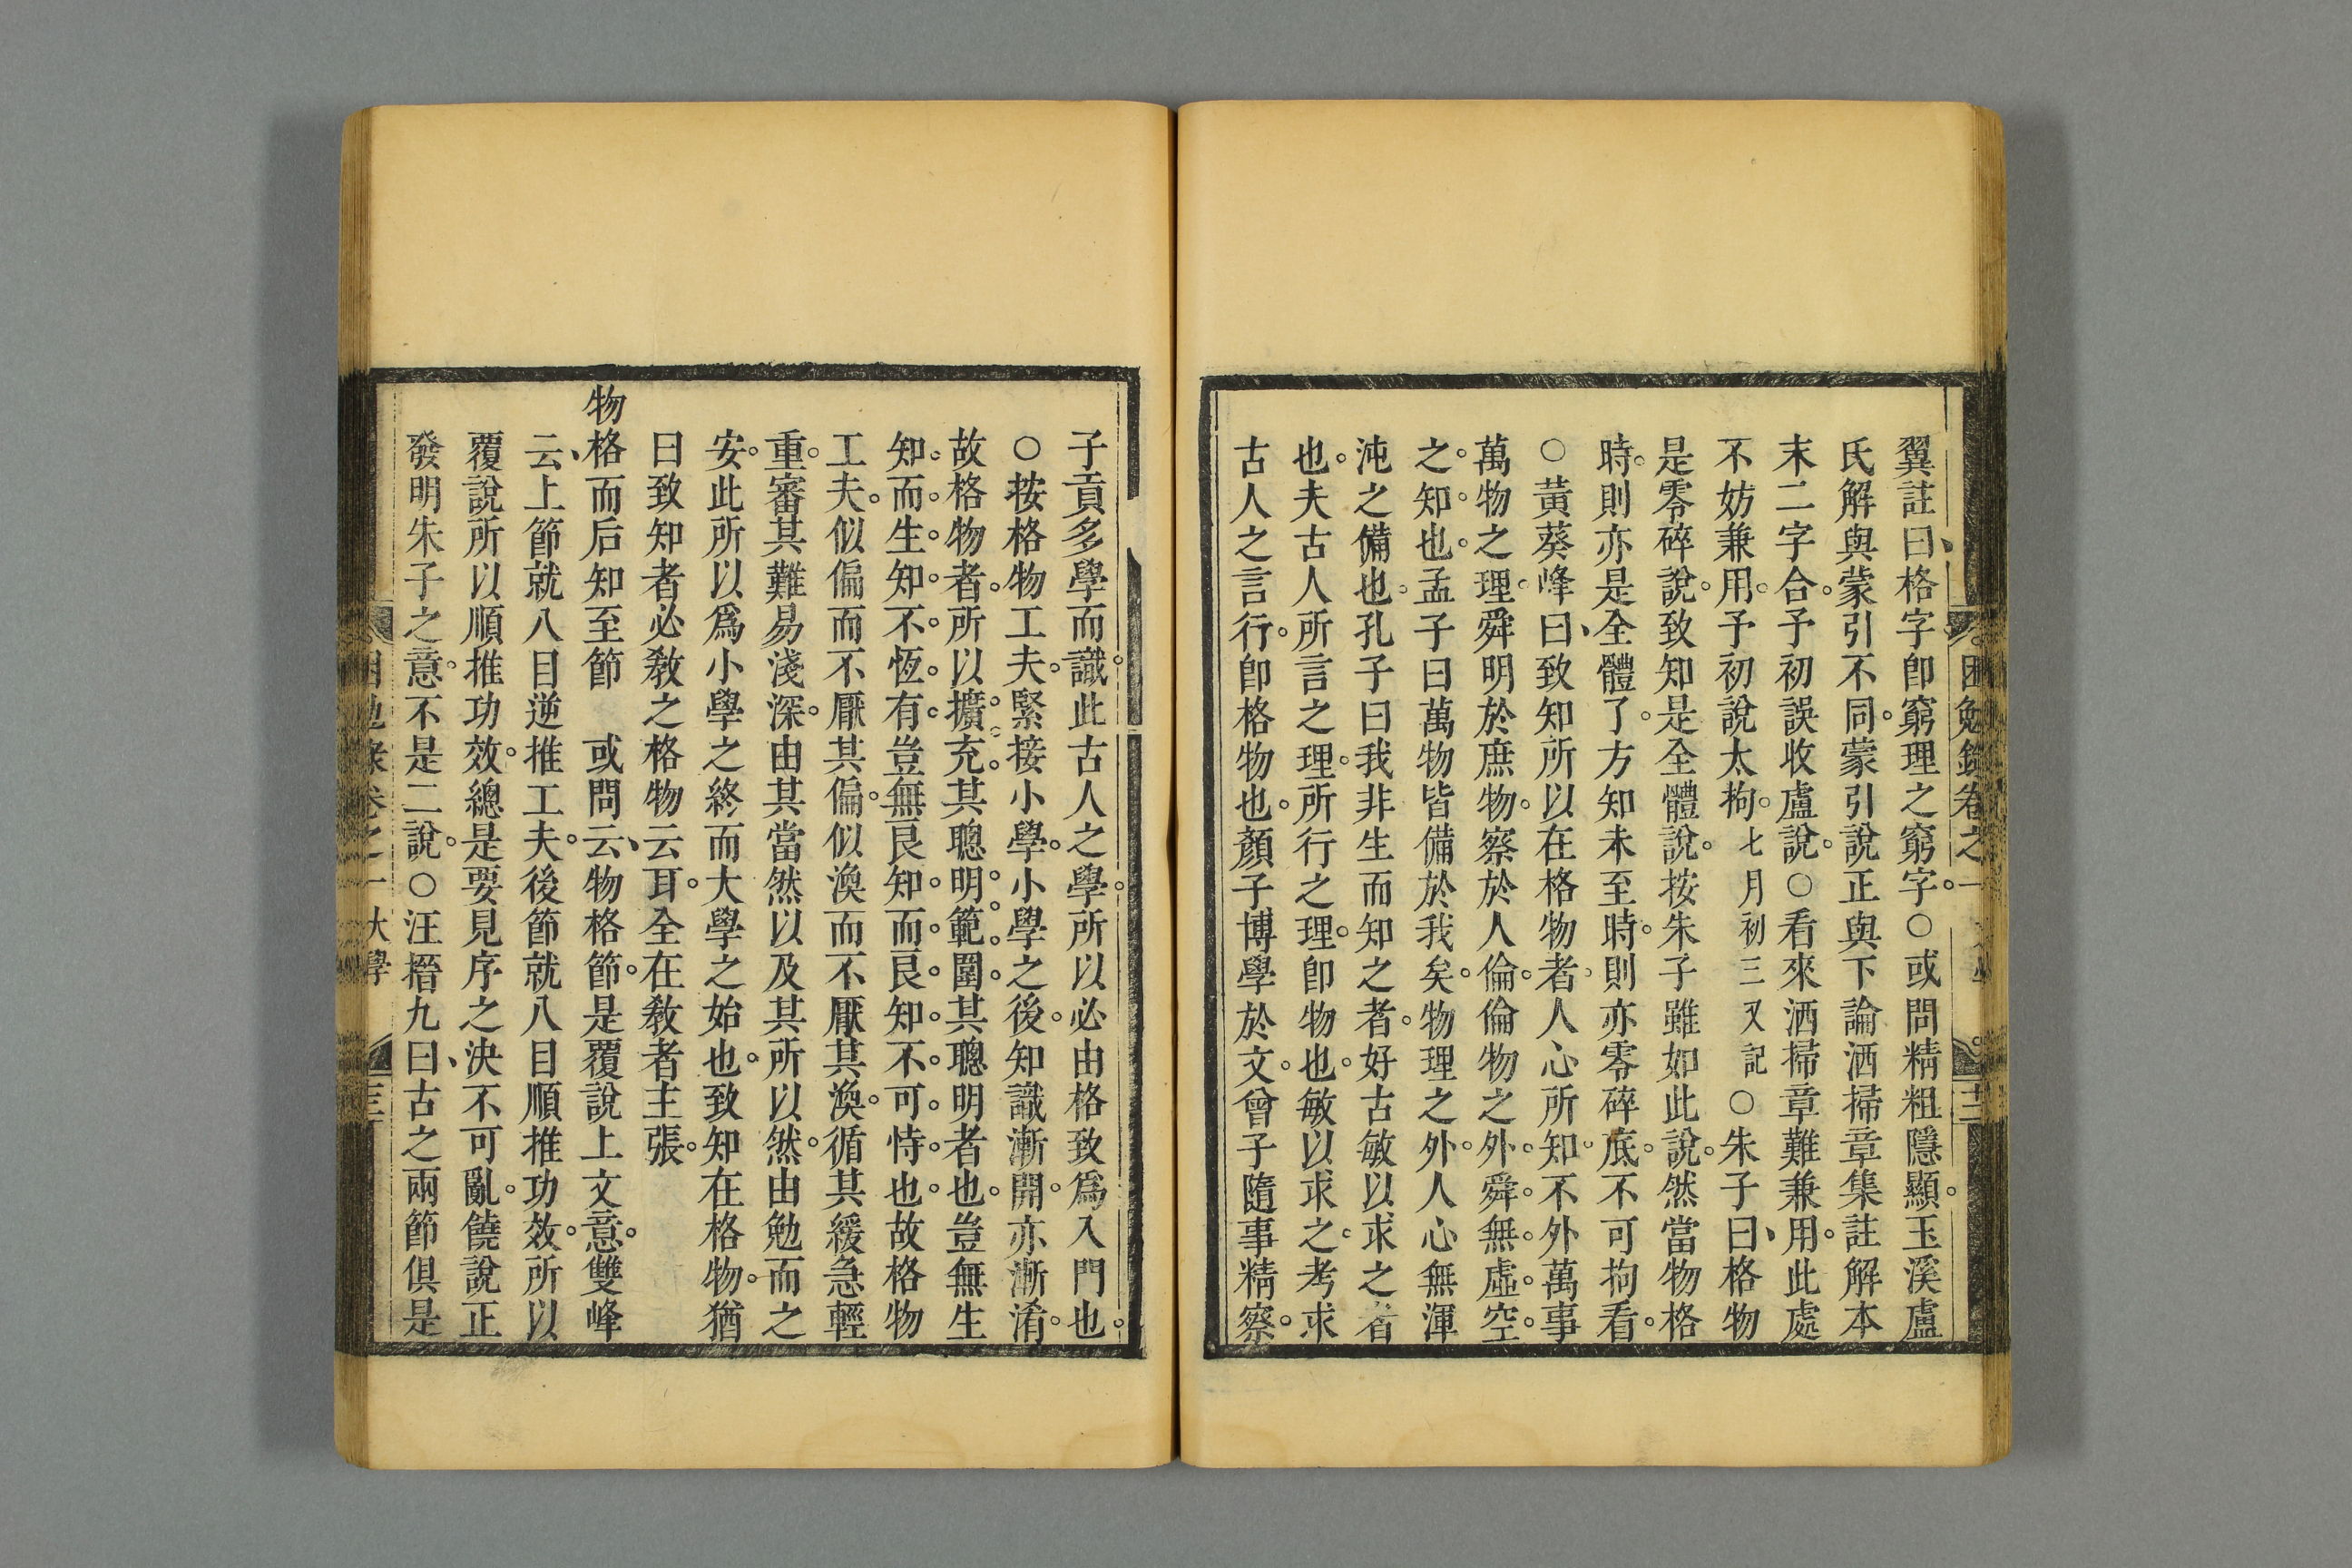 困勉錄卷之一
十二
翼註曰格字卽窮理之窮字○或問精粗隱顯玉溪盧
氏解與蒙引不同蒙引說正與下論洒掃章集註解本
末二字合予初誤收盧說○看來洒掃章難兼用此處
不妨兼用予初說太拘七月初三又記○朱子曰格物
是零碎說致知是全體說按朱子雖如此說然當物格
時則亦是全體了方知未至時則亦零碎底不可拘看
○黃葵峰曰致知所以在格物者人心所知不外萬事
萬物之理舜明於庶物察於人倫倫物之外舜無虛空
之知也孟子曰萬物皆備於我矣物理之外人心無渾
沌之備也孔子曰我非生而知之者好古敏以求之者
也夫古人所言之理所行之理卽物也敏以求之考求
古人之言行卽格物也顏子博學於文曾子隨事精察
子貢多學而識此古人之學所以必由格致爲入門也
○按格物工夫緊接小學小學之後知識漸開亦漸淆
故格物者所以擴充其聰明範圍其聰明者也豈無生
知而生知不恆有豈無良知而良知不可恃也故格物
工夫似偏而不厭其偏似渙而不厭其渙循其緩急輕
重審其難易淺深由其當然以及其所以然由勉而之
安此所以爲小學之終而大學之始也致知在格物猶
曰致知者必敎之格物云耳全在敎者主張
物格而后知至節　或問云物格節是覆說上文意雙峰
云上節就八目逆推工夫後節就八目順推功效所以
覆說所以順推功效總是要見序之決不可亂饒說正
發明朱子之意不是二說○汪搢九曰古之兩節俱是
困勉錄卷之一大學